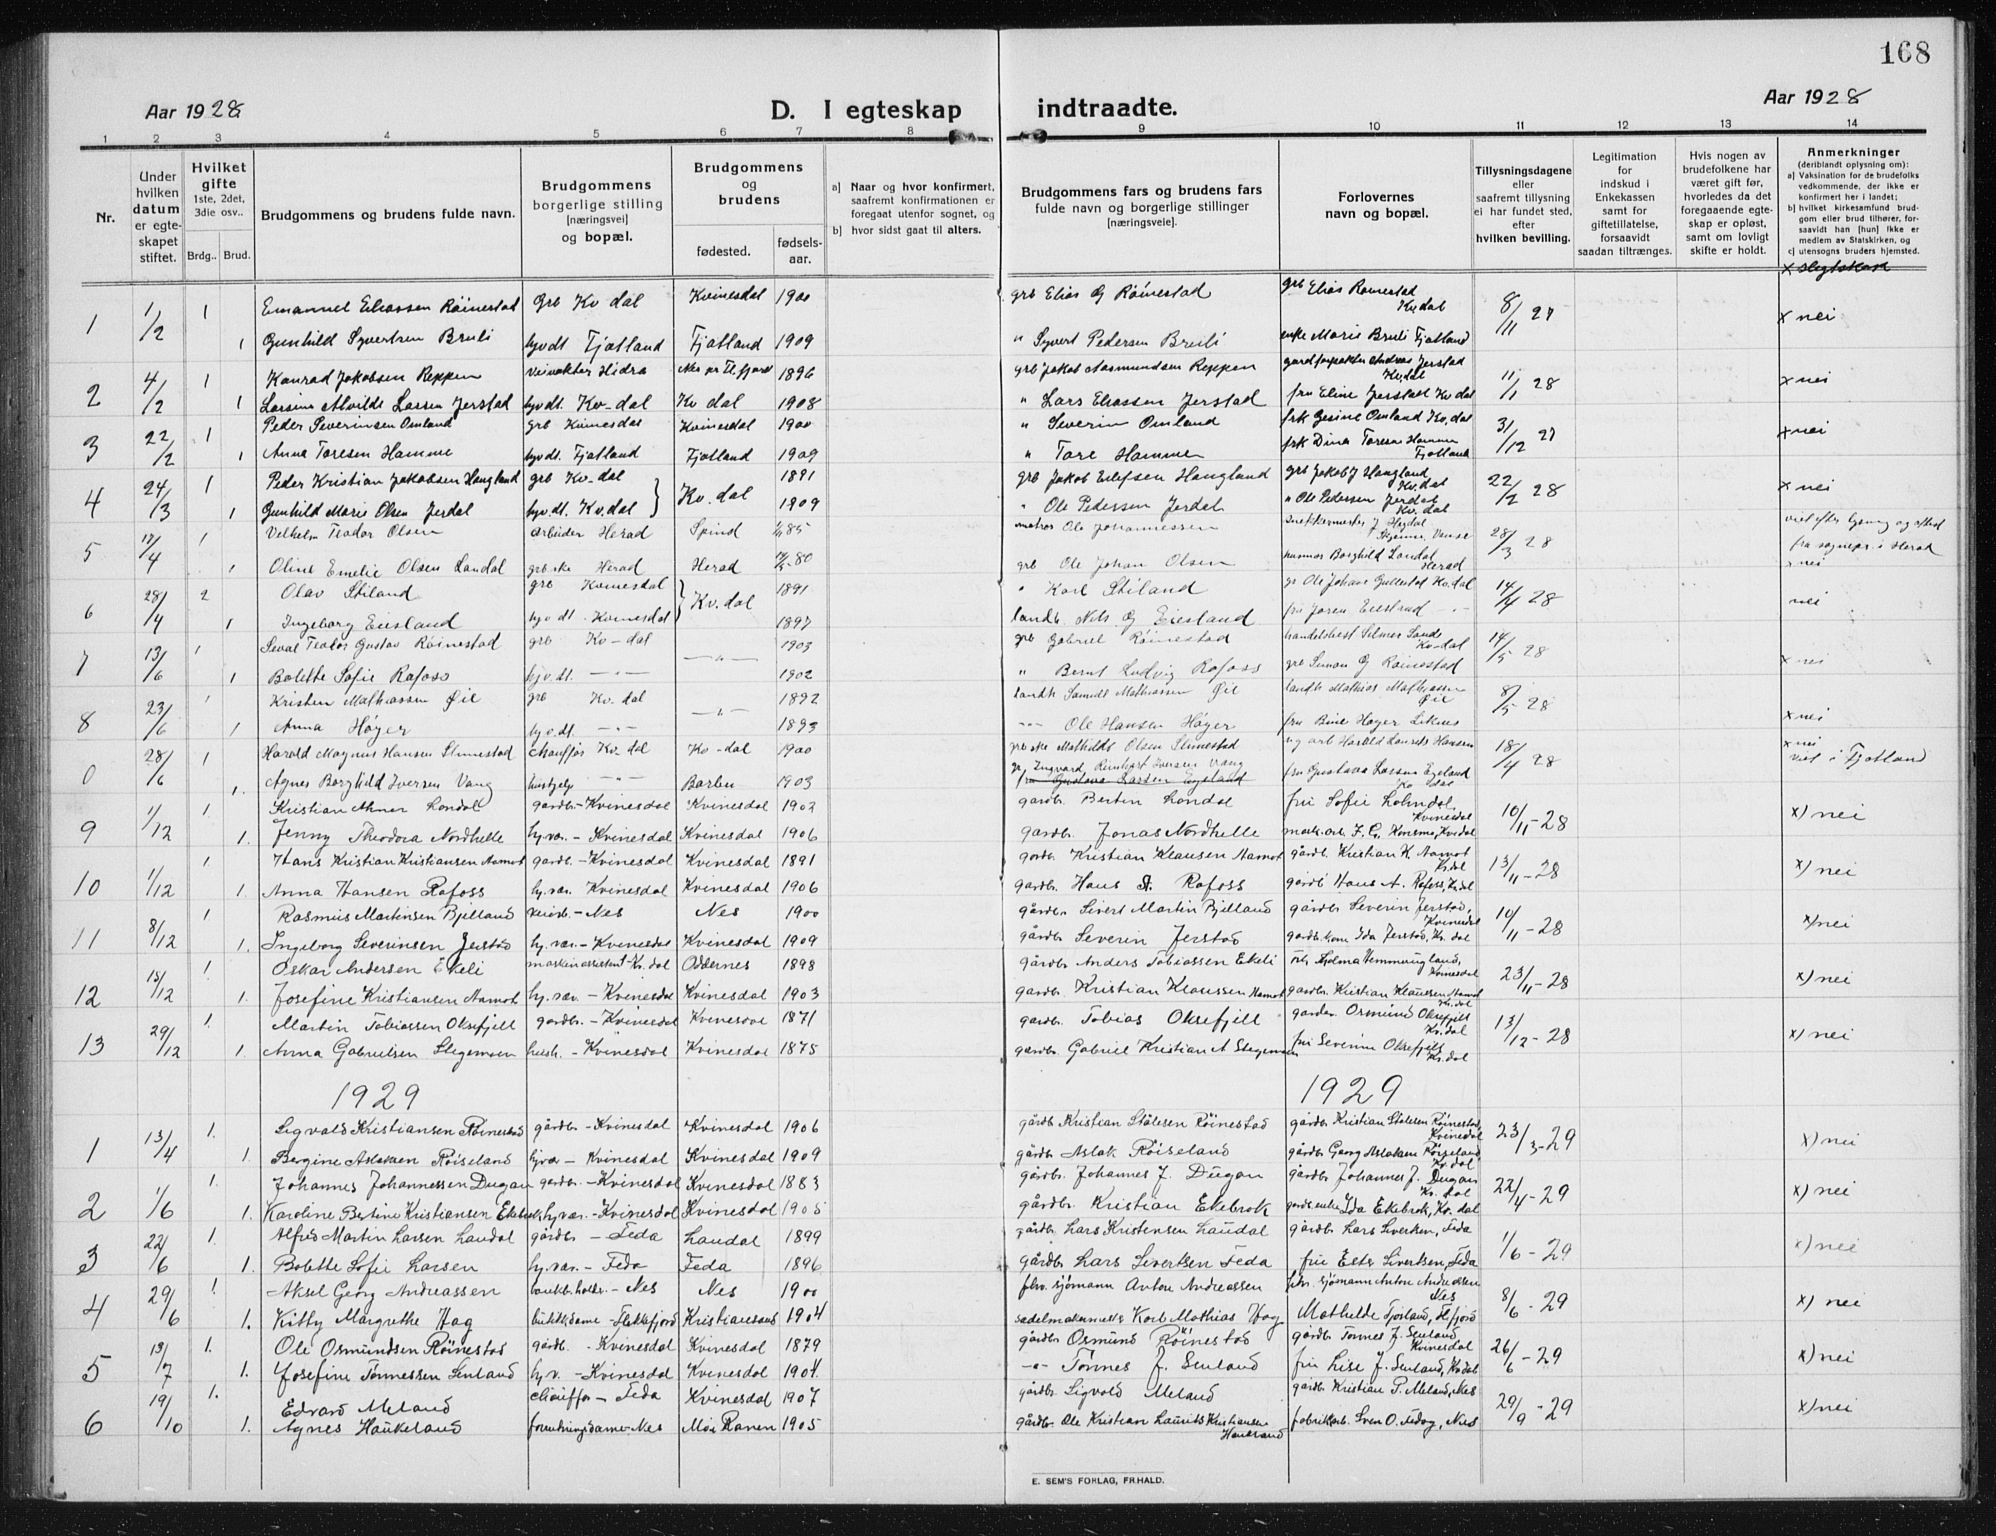 168
Aar 1928
D. I egteskap indtraadte.
Aar 1928
1 2 3 4 5 6 7 8 9 10 11 12 13 14
Nr.
Under hvilken datum er egteskapet stiftet.
Hvilket gifte 1ste, 2det, 3die osv..
Brdg.. Brud.
Brudgommens og brudens fulde navn.
Brudgommens borgerlige stilling [næringsvei] og bopæl.
Brudgommens og brudens
fødested. fødselsaar.
a) Naar og hvor konfirmert, saafremt konfirmationen er foregaat utenfor sognet, og
b) hvor sidst gaat til alters.
Brudgommens fars og brudens fars fulde navn og borgerlige stillinger [næringsveie].
Forlovernes navn og bopæl.
Tillysningsdagene eller saafremt tillysning ei har fundet sted, efter hvilken bevilling.
Legitimation for indskud i Enkekassen samt for giftetillatelse, forsaavidt saadan tiltrænges.
Hvis nogen av brudefolkene har været gift før, hvorledes da det foregaaende egteskap er opløst, samt om lovlig skifte er holdt.
Anmerkninger (deriblandt oplysning om): a) Vaksination for de brudefolks vedkommende, der ikke er konfirmert her i landet; b) hvilket kirkesamfund brudgom eller brud tilhører, forsaavidt han [hun] ikke er medlem av Statskirken, og c) utensogns bruders hjemsted.
x slegtskap
1 1/2 1 Emanuel Eliassen Röinestad Grb Kv dal Kvinesdal 1900 grb Elias G Röinestad grb Elias Röinestad Kv.dal 8/11 27 x nei
1 Gunhild Syvertsen Bruli hjv dt Fjotland Fjotland 1909 " Syvert Pedersen Breili enke Marie Bruli Fjotland
2 4/2 1 Konrad Jakobsen Reppen Veivokter Hidra Nes pr Fl.fjord 1896 grb Jakob Aasmundsen Reppen gardforpakter Andreas Jerstad Kv.dal 11/1 28 x nei
1 Larsine Alvilde Larsen Jerstad hjv dt. Kv-dal Kv dal 1908 " Lars Eliassen Jerstad fru Eline Jerstad Kv dal
3 22/2 1 Peder Severinsen Omland grb Kvinesdal Kvinesdal 1900 " Severin Omland frk Gesine Omland Kv.dal 31/12 27 x nei
1 Anna Toresen Hamme hjv dt. Fjotland Fjotland 1909 " Tore Hamme frk Dina Toresen Hamme Fjotland
4 24/3 1 Peder Kristian Jakobsen Haugland grb Kv-dal Kv.dal 1891 grb Jakob Eilefsen Haugland grb Jakob J Haugland Kv.dal 22/2 28 x nei
1 Gunhild Marie Olsen Jerdal hjv.dt. Kv.dal 1909 " Ole Pedersen Jerdal " Ole Pedersen Jerdal Kv.dal
5 17/4 1 Vilhelm Teodor Olsen arbeider Herad Spind 85 matros Ole Johannessen 28/3 28 viet efter lysning og attest fra sognepr. i Herad
1 Oline Emelie Olsen Landal grb.ske Herad Herad 80 grb Ole Johan Olsen Borghild Landal Herad x nei
6 28/4 2 Olav Stiland grb Kvinesdal Kv.dal 1891 " Karl Stiland gr Ole Johan Gullestad Kv.dal 14/4 28 nei
1 Ingeborg Eiesland hjv dt. Kvinesdal 1897 landh. Nils G Eiesland fru Joren Eiesland - " -
7 13/6 1 Seval Teodor Gustav Röinestad grb Kv-dal - " - 1903 grb Gabriel Röinestad handelsbest Selmer Sande Kv-dal 14/5 28 x nei
1 Bolette Sofie Rafoss hjv.dt. - " - 1902 " Bernt Ludvig Rafoss grb Simon G Röinestad
8 23/6 1 Kristen Mathiassen Øie grb Kv.dal - " - 1892 landh Samuel Mathiassen Øie landh Mathias Mathiassen Øie 8/5 28 x nei
1 Anna Höyer hjv.dt. - " - 1893 - " - Ole Hansen Höyer fru Bine Höyer Liknes
0 28/6 1 Harald Magnus Hansen Slimestad Chauffør Kv.dal Kv-dal 1900 grb ske Mathilde Olsen Slimestad Harald Laurits Hansen 18/4 28 x nei viet i Fjotland
1. Agnes Borghild Iversen Vang hushjelp - " - Barbu 1903 Ingvard Reinhart Iversen Vang fru Gustava Larsen Egeland fru Gustava Larsen Egeland Kv dal
9 1/12 1. Kristian Abner Londal gardbr.-Kvinesdal Kvinesdal 1902 gardbr. Bertin Londal fru Sofie Lohndal, Kvinesdal 10/11-28 x) nei
1. Jenny Theodora Nordhelle hj.vær.-Kvinesdal Kvinesdal 1906 gardbr. Jonas Nordhelle
10 1/12 1 Hans Kristian Kristiansen Aamot gardb.-Kvinesdal Kvinesdal 1891 gardbr. Kristian Klausen Aamot gårdb. Kristian K. Aamot Kv.dal 13/11-28 x) nei
1. Anna Hansen Rafoss hj.vær. Kvinesdal Kvinesdal 1906 gardbr. Hans A. Rafoss gårdb Hans A. Rafoss, Kv.dal
11 8/12 1 Rasmus Martinsen Bjelland Nes Nes 1900 gårdbr. Sivert Martin Bjelland gårdbr. Severin Jerstad, Kvinesdal 10/11-28 x) nei
1. Ingeborg Severinsen Jerstad hj.vær.-Kvinesdal Kvinesdal 1909 gårdbr. Severin Jerstad gardbr.kone Ida Jerstad, Kv.dal
12 15/12 1. Oskar Andersen Ekeli maskinassistent-Kv.dal Oddernes 1898 gårdbr. Anders Tobiassen Ekeli Kvinesdal 23/11-28 x) nei
1. Josefine Kristiansen Aamot hj.vær.-Kvinesdal Kvinesdal 1903 gardbr. Kristian Klaussen Aamot gardbr. Kristian Klaussen Aamot Kv.dal
13 29/12 1. Martin Tobiassen Oksefjell gardbr.-Kvinesdal Kvinesdal 1871 gardbr. Tobias Oksefjell gardbr. Osmund Oksefjell Kv.dal 13/12-28 x) nei
1. Anna Gabrielsen Stegemoen hush.-Kvinesdal Kvinesdal 1875 gardbr. Gabriel Kristian A Stegemoen fru Severine Oksefjell Kv.dal
1929 1929
1 13/4 1. Sigvald Kristiansen Röinestad gårdbr.-Kvinesdal Kvinesdal 1906 gårdb Kristian Stålesen Röinestad gårdbr. Kristian Stålesen Röinestad, Kvinesdal 23/3-29 x) nei
1. Bergine Aslaksen Röiseland hjvær-Kvinesdal Kvinesdal 1909 gårdbr Aslak Röiseland gårdbr. Georg Aslaksen Röiseland, Kv.dal
2 1/6 1. Johannes Johannessen Dugan gardbr.-Kvinesdal Kvinesdal 1883 gårdbr. Johannes J. Dugan gårdbr. Johannes J. Dugan Kv.dal 22/4-29 x) nei
1. Karoline Bertine Kristiansen Ekebrok hj.vær.-Kvinesdal Kvinesdal 1905 gårdbr. Kristian Ekebrok gards.enke Ida Ekebrok, Kv.dal
3 22/6 1. Alfred Martin Larsen Laudal gårdbr - Feda Laudal 1899 gårdbr Lars Kristensen Laudal gårdbr Lars Sivertsen, Feda 1/6-29 x) nei
1. Bolette Sofie Larsen hj.vær.- Feda Feda 1896 gårdbr. Lars Sivertsen Feda fru Elser Sivertsen, Feda
4 29/6 1. Aksel Georg Andreassen Nes Nes 1900 fhv. sjömann Anton Andreassen fhv. sjömann Anton Andreassen Nes 8/6-29 x) nei
1. Kitty Margrethe Hag butikkdame-Flekkefjord Kristiansand 1904 sadelmakermester Karl Mathias Hag Mathelde Tjörland, Fl.fjord
5 13/7 1. Ole Osmundsen Röinestad gårdb. -Kvinesdal Kvinesdal 1879 gårdbr Osmund Röinestad gårdbr Tonnes J. Senland, Kvinesdal 26/6-29 x) nei
1. Josefine Tönnessen Senland hj.v. -Kvinesdal Kvinesdal 1901 -"- Tönnes J. Senland fru Lise J. Senland, Kv.dal
6 19/10 1. Edvard Meland Chauffør- Feda Kvinesdal 1907 gårdbr. Sigvald Meland gårdbr. Kristian P. Meland, Nes 29/9-29 x) nei
1. Agnes Haukeland forretningsdame-Nes Moi Ranen 1905 gårdbr. Ole Kristian Laurits Kristiansen Haukeland fabrikkarb. Sven O. Nes
E. SEM'S FORLAG, FR.HALD.